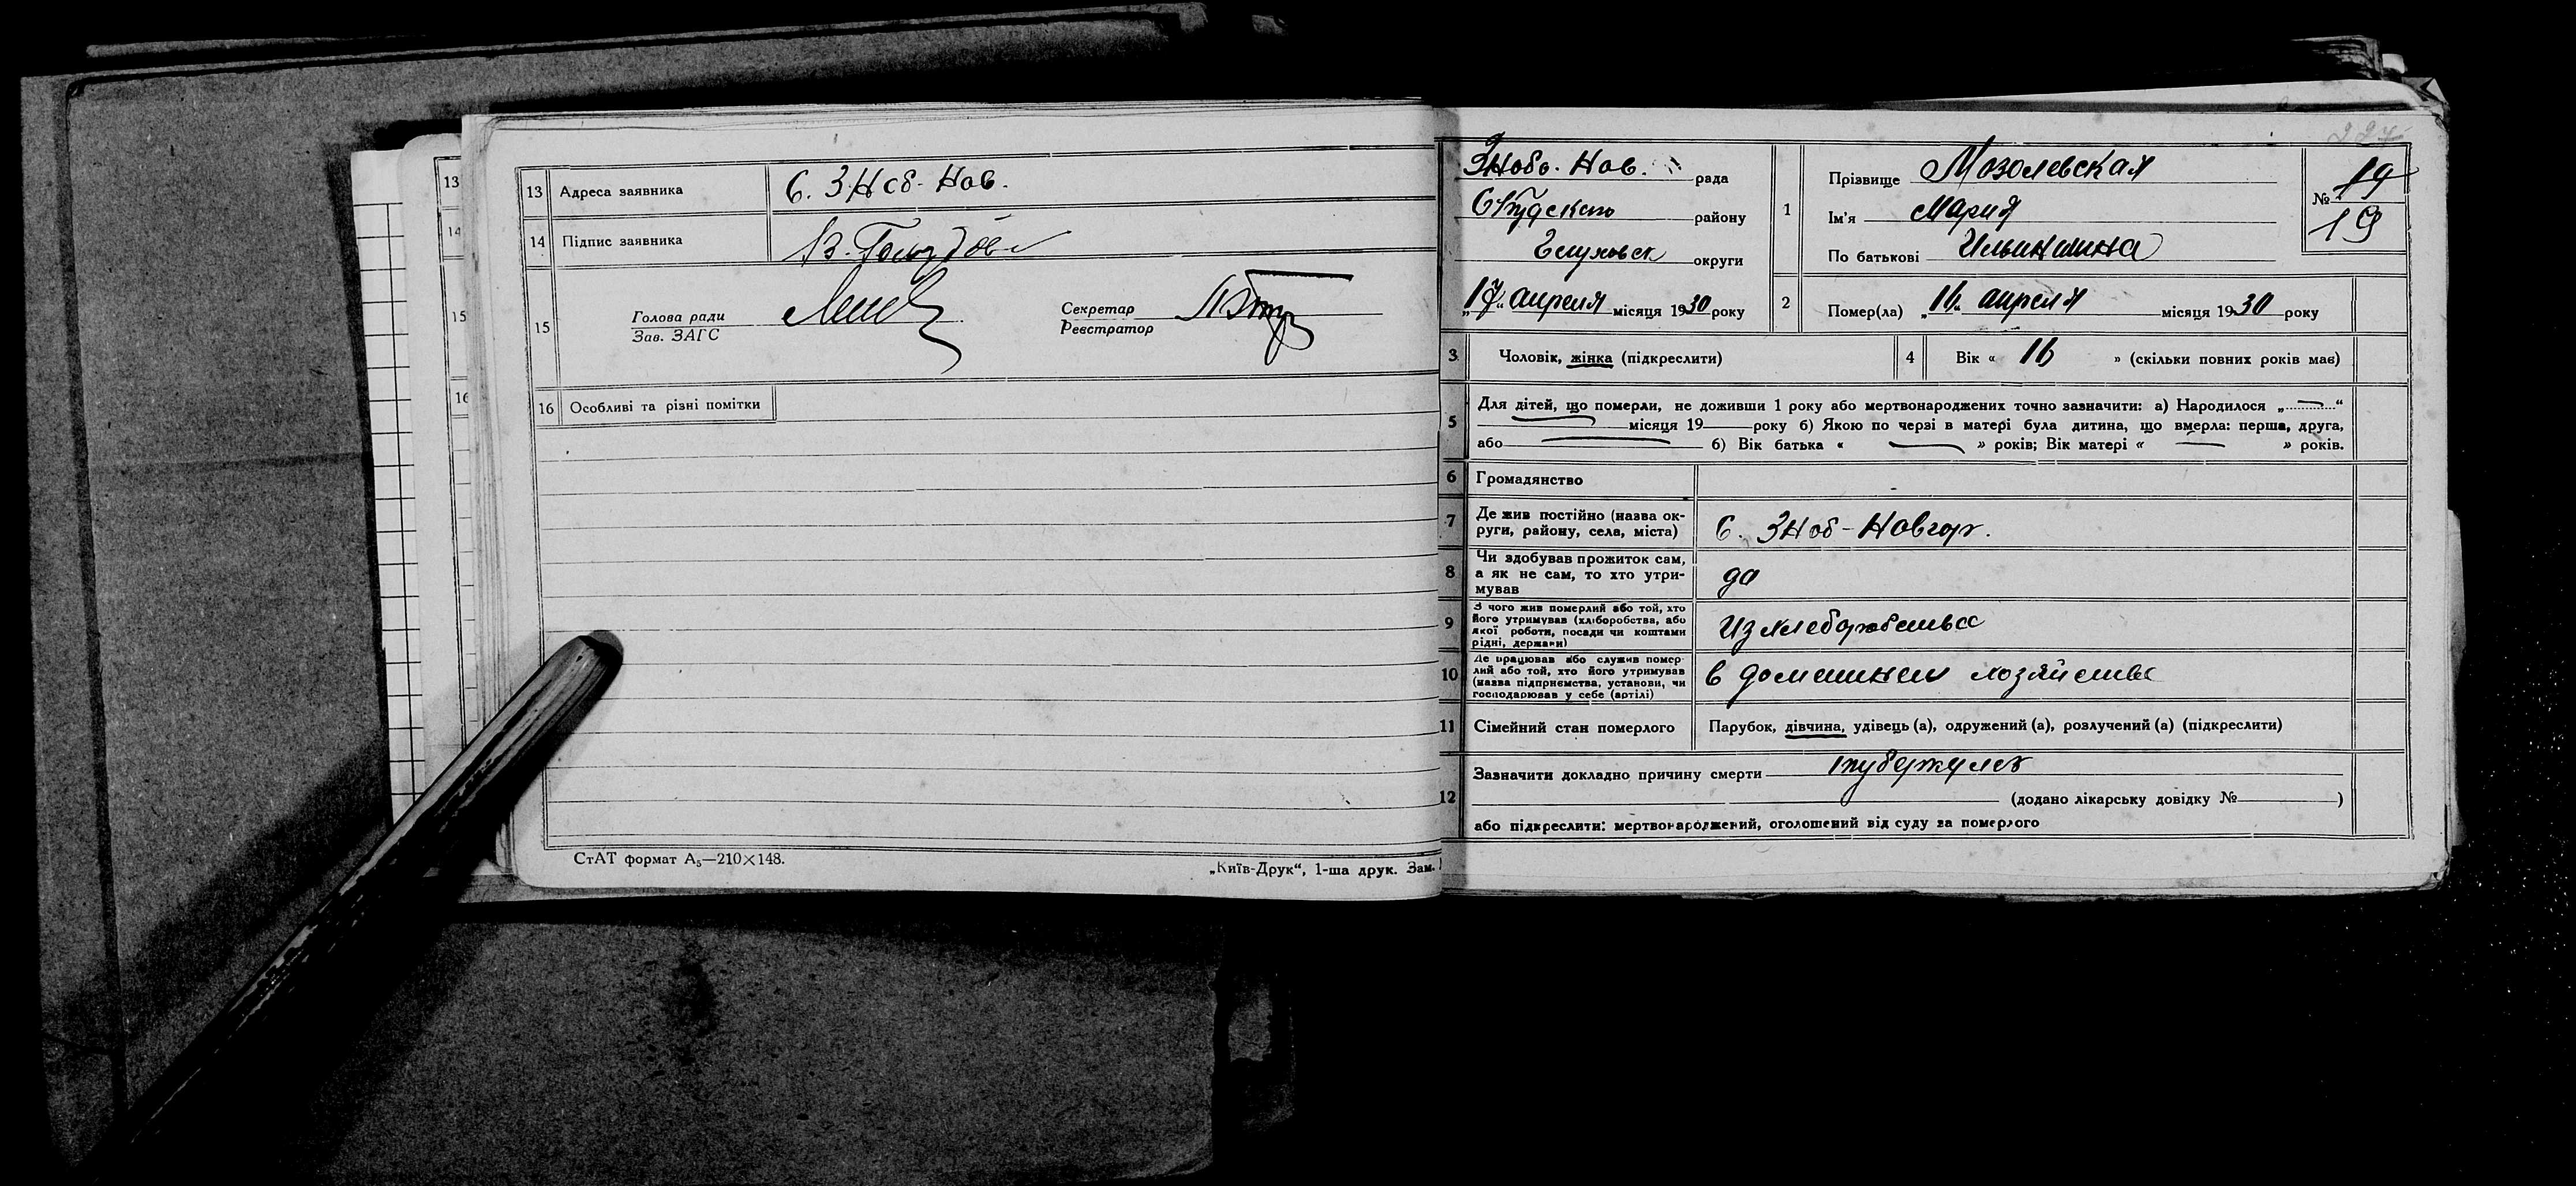 13
14
15
16
13 Адреса заявника С. ЗНоб-Нов.
14 Підпис заявника В.
15 Голова ради
Зав. ЗАГС
Секретар
Реєстратор
16 Особливі та різні помітки
СтАТ формат А₅—210×148.
„Київ-Друк“, 1-ша друк. Зам.
227
ЗНобо. Нов. рада
района
Глуховск округи
„17„ апреля місяця 1930 року
1 Прізвище Мозолевская
Ім'я Мария
По батькові Ильинишна
№ 19
19
2 Помер(ла) „16„ апреля місяця 1930 року
3 Чоловік, жінка (підкреслити)
4 Вік « 16 » (скільки повних років має)
5 Для дітей, що померли, не доживши 1 року або мертвонароджених точно зазначити: а) Народилося „ — “
місяця 19 року б) Якою по черзі в матері була дитина, що вмерла: перша, друга,
або б) Вік батька « — » років; Вік матері « — » років.
6 Громадянство
7 Де жив постійно (назва ок-
руги, району, села, міста) С. ЗНоб-Новгор.
8 Чи здобував прожиток сам,
а як не сам, то хто утри-
мував да
9 З чого жив померлий або той, хто
його утримував (хліборобства, або
якої роботи, посади чи коштами
рідні, держави) Из хлеборобства
10 Де працював або служив помер-
лий або той, хто його утримував
(назва підприємства, установи, чи
господарював у себе (артілі) в домашнем хозяйстве
11 Сімейний стан померлого Парубок, дівчина, удівець (а), одружений (а), розлучений (а) (підкреслити)
12 Зазначити докладно причину смерти туберкулез
(додано лікарську довідку № )
або підкреслити: мертвонароджений, оголошений від суду за померлого